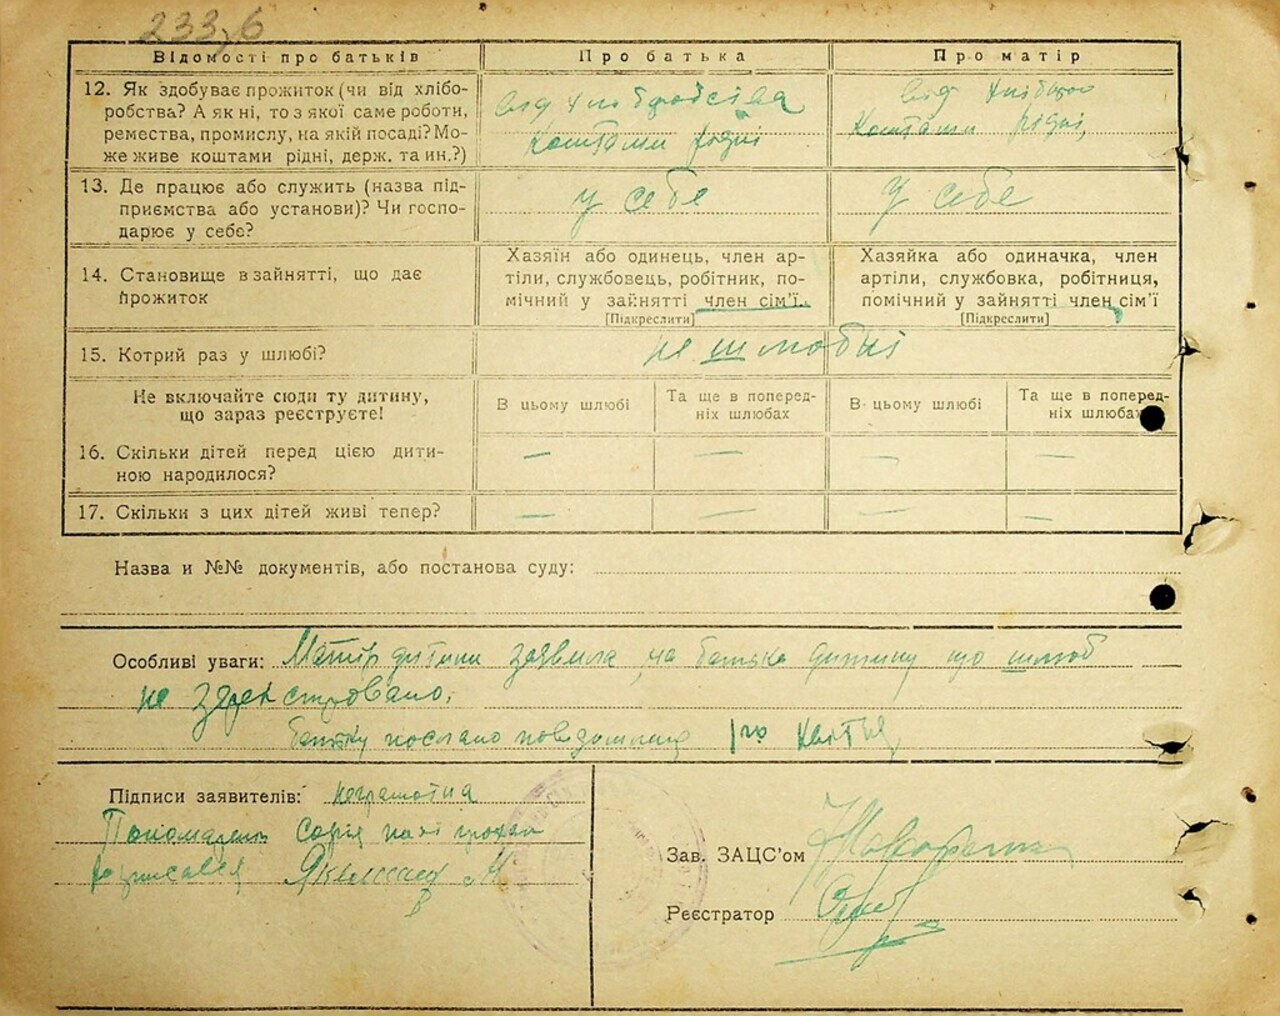 233,6
Відомості про батьків
Про батька
Про матір
12. Як здобуває прожиток (чи від хлібо-
робства? А як ні, то з якої саме роботи,
ремества, промислу, на якій посаді? Мо-
же живе коштами рідні, держ. та ин.?)
від хліборобства
коштами рідні
від
коштами рідні,
13. Де працює або служить (назва під-
приємства або установи)? Чи госпо-
дарює у себе?
у себе
у себе
14. Становище в зайнятті, що дає
прожиток
Хазяїн або одинець, член ар-
тіли, службовець, робітник, по-
мічний у зайнятті член сім'ї.
[Підкреслити]
Хазяйка або одиначка, член
артіли, службовка, робітниця,
помічний у зайнятті член сім'ї
[Підкреслити]
15. Котрий раз у шлюбі?
не шлюбні
Не включайте сюди ту дитину,
що зараз реєструєте!
В цьому шлюбі
Та ще в поперед-
ніх шлюбах
В цьому шлюбі
Та ще в поперед-
ніх шлюбах
16. Скільки дітей перед цією дити-
ною народилося?
— — — —
17. Скільки з цих дітей живі тепер?
— — — —
Назва и №№ документів, або постанова суду:
Особливі уваги: Матір дитини заявила на батька дитини що шлюб
не зареєстровано.
батьку послано повідомлення 1го квітня
Підписи заявителів: неграмотна
Софія
розписався
Зав. ЗАЦС'ом
Реєстратор